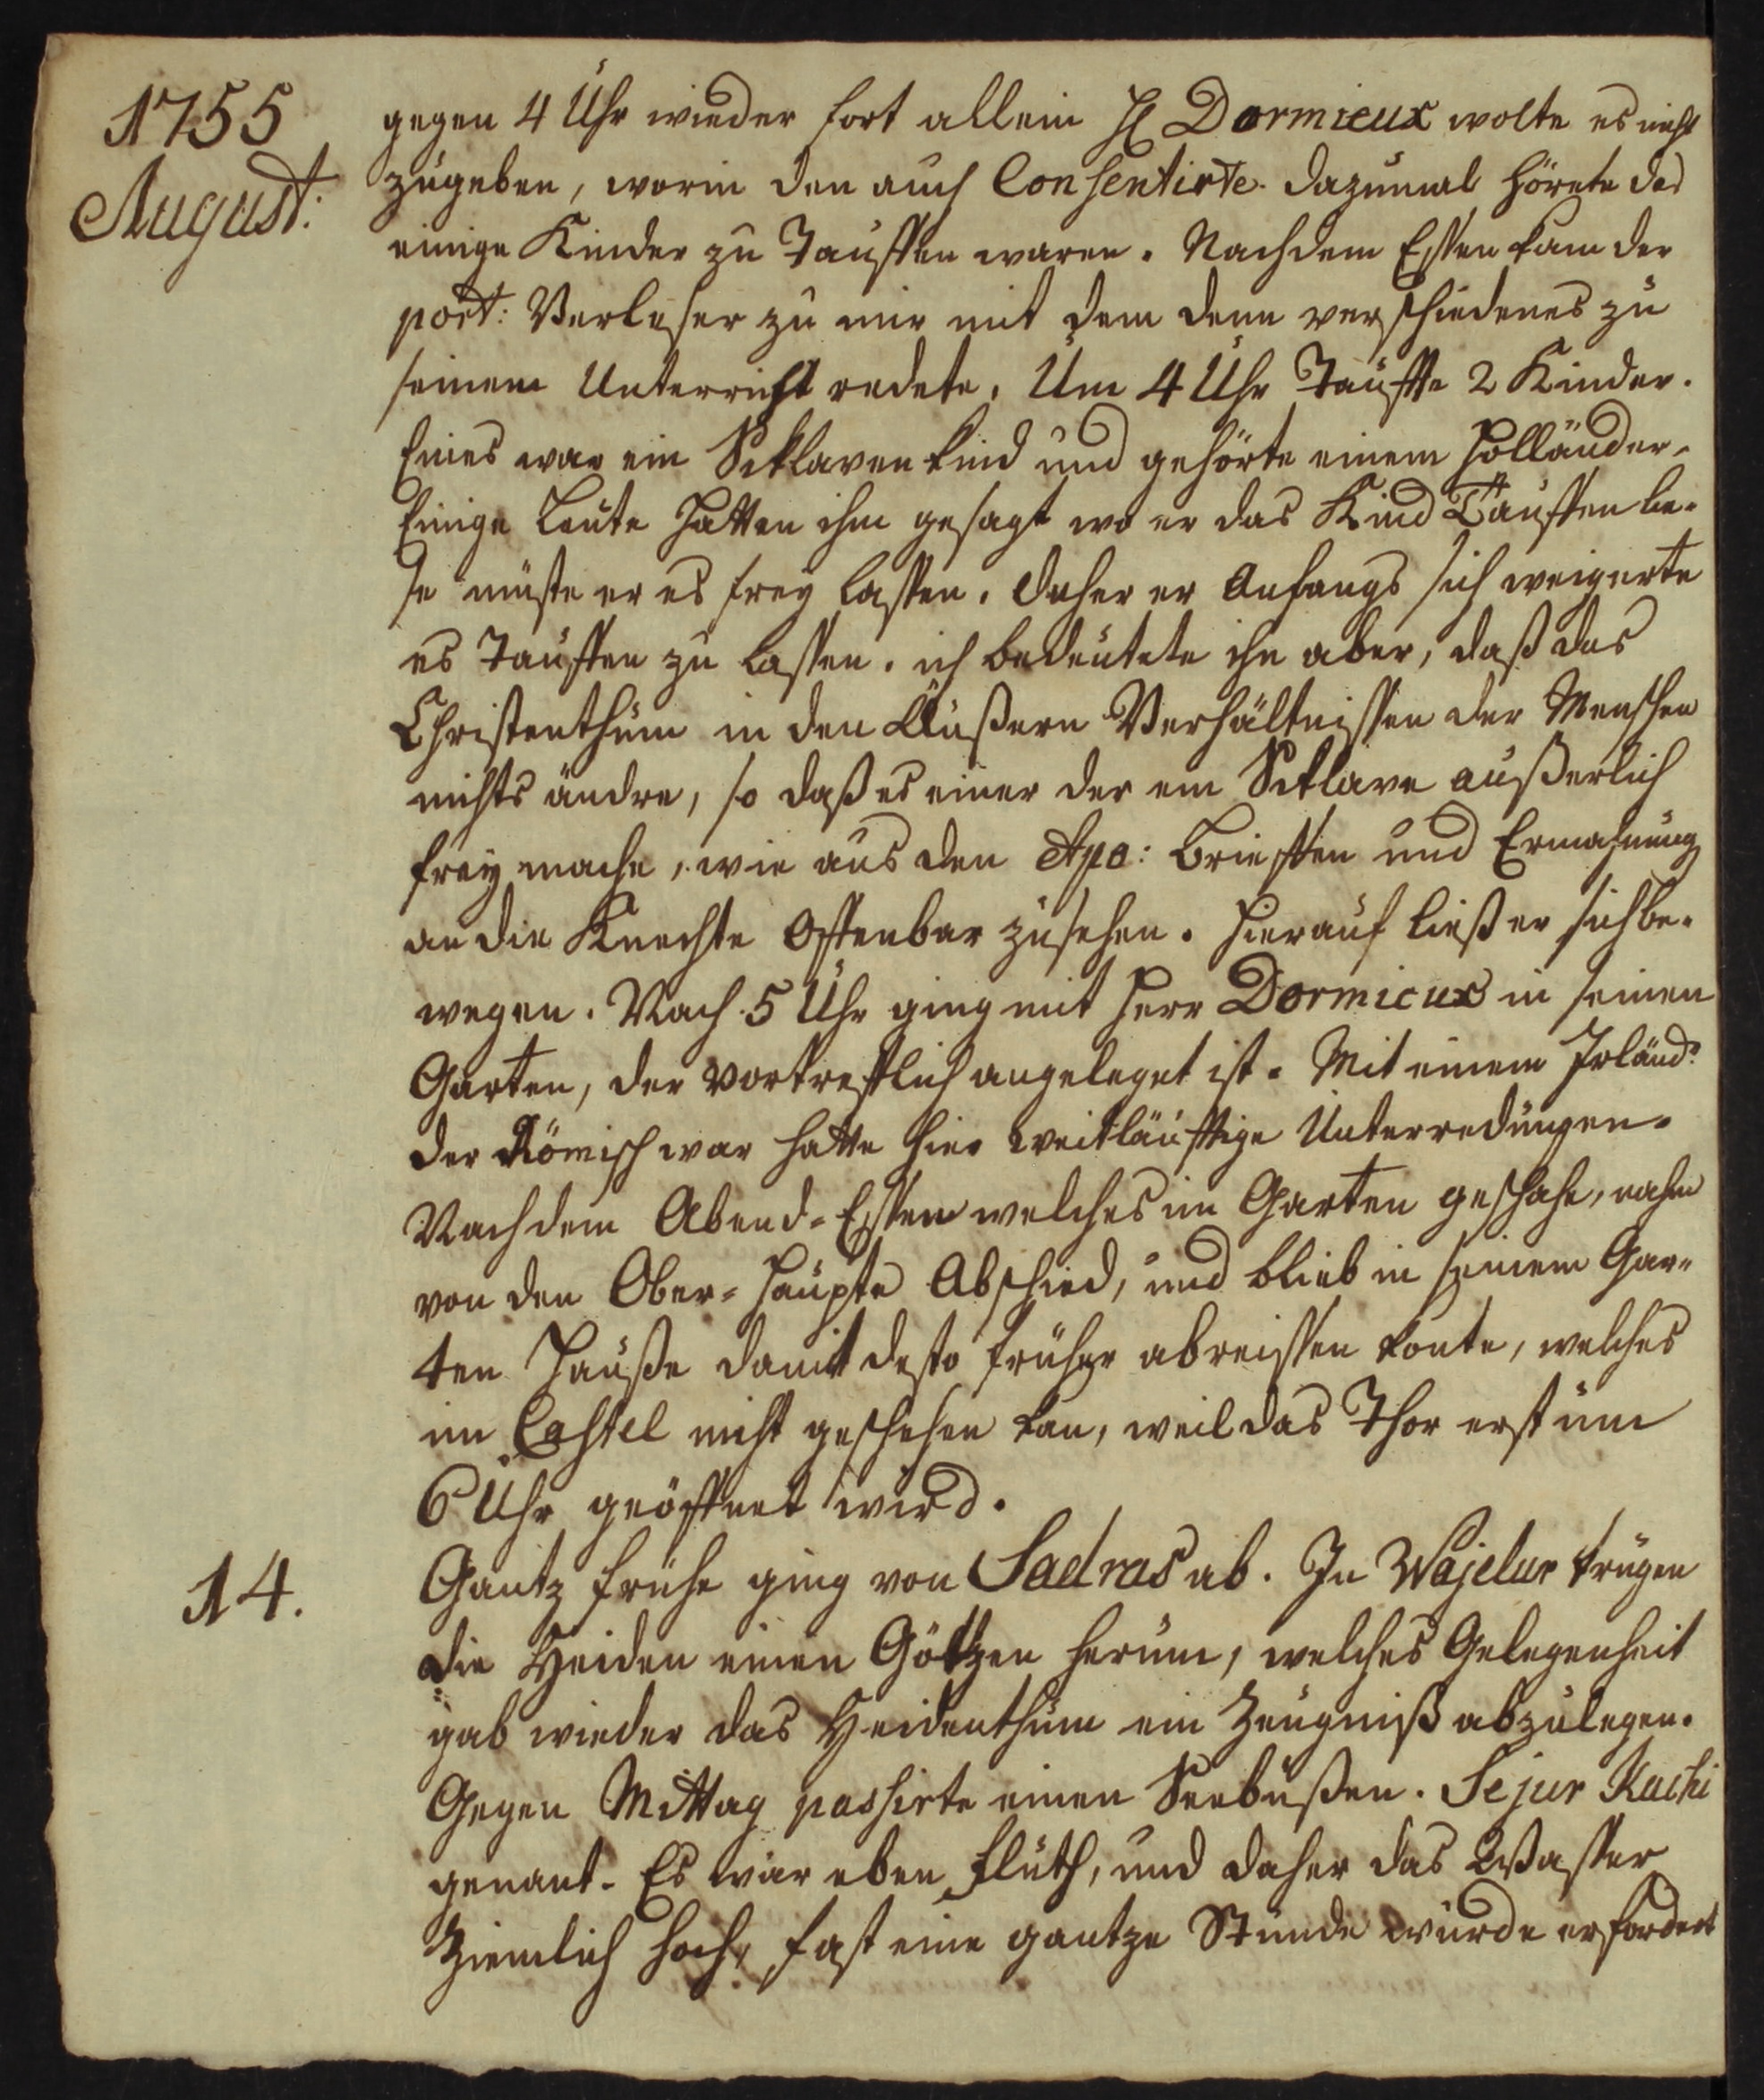 1755
August:
gegen 4 Uhr wieder fort allein H Dormieux wolte es nicht
zugeben, worin den auch Consentirte. dazumal hörete das
einige Kinder zu Tauffen waren. Nachdem Essen kam der
port: Verleser zu mir mit dem denn verschiedenes zu
seinem Unterricht redete. Um 4 Uhr Tauffte 2 Kinder.
Eines war ein Scklaven kind und gehörte einem Holländer.
Einige Leute hatten ihm gesagt wo er das Kind Täuffen lie-
se müste er es frey lassen. daher er Anfangs sich weigerte
es Tauffen zu lassen. ich bedeutete ihn aber, daß das
Christenthum in den Äußern Verhältnissen der Menschen
nichts ändre, so daß es einer der ein Scklave äußerlich
frey mache, wie aus den Apo: Brieffen und Ermahnung
an die Knechte Offenbar zusehen. Hierauf ließ er sich be-
wegen. Nach 5 Uhr ging mit Herr Dormieux in seinen
Garten, der vortrefflich angeleget ist. Mit einem Irländ:
der Römisch war hatte hier weitläufftige Unterredungen.
Nach dem Abend-Essen welches im Garten geschahe, nahm
von den Ober-Haupte Abschied, und blieb in seinem Gar-
ten Hauße damit desto früher abreissen konte, welches
im Castel nicht geschehen kan, weil das Thor erst um
6 Uhr geöffnet wird.
14.
Gantz frühe ging von Sadras ab. In Wajelur trugen
die Heiden einen Götzen herum, welches Gelegenheit
gab wieder das Heidenthum ein Zeugniß abzulegen.
Gegen Mittag passirte einen Seebußen. Sejur Kachi
genant. Es war eben Fluth, und daher das Wasser
Ziemlich hoch, fast eine gantze Stunde wurde erfordert